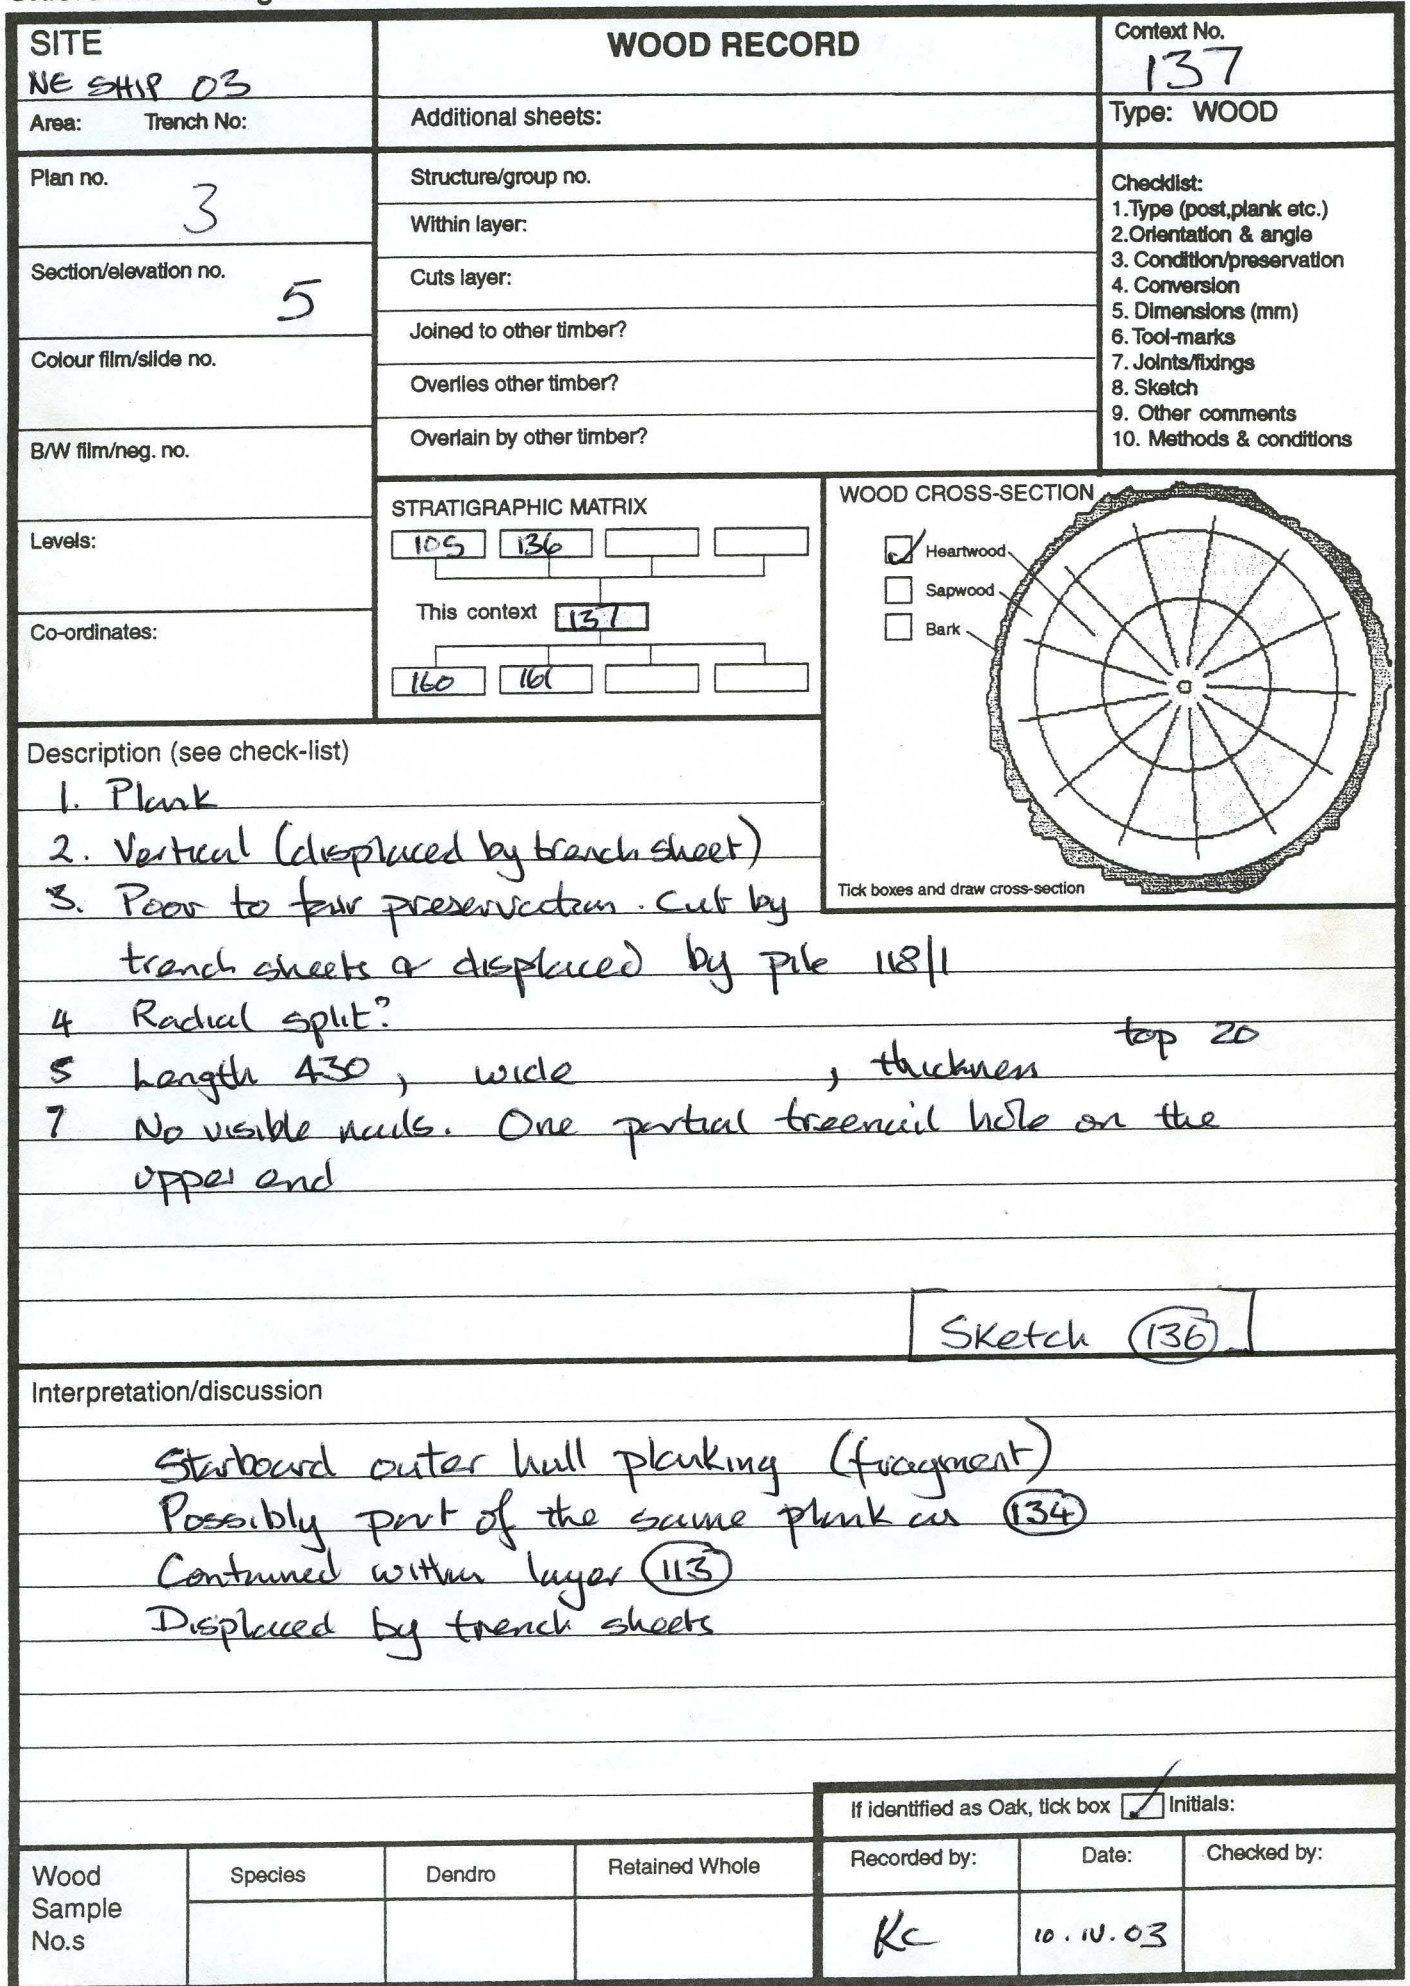 SITE
NE SHIP 03
Area: Trench No:
WOOD RECORD
Additional sheets:
Context No.
137
Type: WOOD
Plan no.
3
Section/elevation no.
5
Colour film/slide no.
B/W film/neg. no.
Levels:
Co-ordinates:
Structure/group no.
Within layer:
Cuts layer:
Joined to other timber?
Overlies other timber?
Overlain by other timber?
Checklist:
1.Type (post,plank etc.)
2.Orientation & angle
3. Condition/preservation
4. Conversion
5. Dimensions (mm)
6. Tool-marks
7. Joints/fixings
8. Sketch
9. Other comments
10. Methods & conditions
STRATIGRAPHIC MATRIX
105 136
This context 137
160 161
WOOD CROSS-SECTION
Heartwood
Sapwood
Bark
Tick boxes and draw cross-section
Description (see check-list)
1. Plank
2. Vertical (displaced by trench sheet)
3. Poor to fair preservation. Cut by
trench sheets & displaced by pile 118/1
4 Radial split?
5 Length 430, wide , thickness top 20
7 No visible nails. One partial treenail hole on the
upper end
Sketch 136
Interpretation/discussion
Starboard outer hull planking (fragment)
Possibly part of the same plank as 134
Contained within layer 113
Displaced by trench sheets
If identified as Oak, tick box Initials:
Wood
Sample
No.s
Species
Dendro
Retained Whole
Recorded by:
KC
Date:
10.IV.03
Checked by: